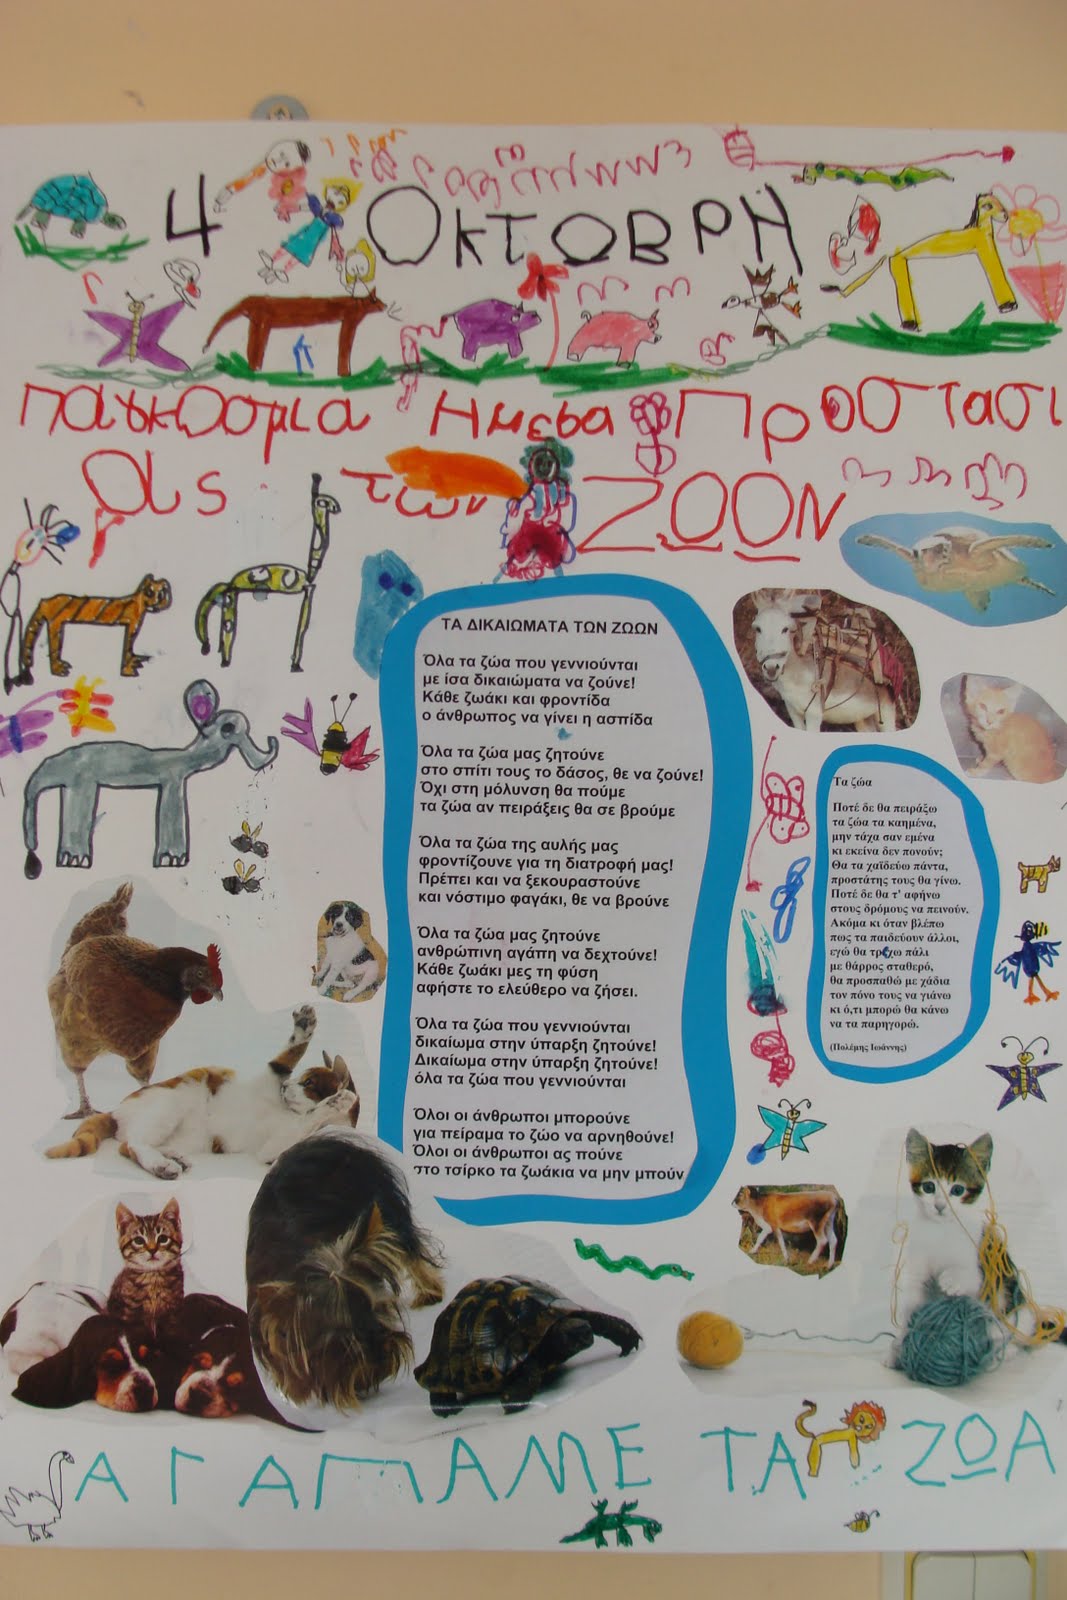 4 ΟΚΤΩΒΡΗ
παγκοσμια Ημερα Προστασι
ας των ΖΩΩΝ
ΤΑ ΔΙΚΑΙΩΜΑΤΑ ΤΩΝ ΖΩΩΝ
Όλα τα ζώα που γεννιούνται
με ίσα δικαιώματα να ζούνε!
Κάθε ζωάκι και φροντίδα
ο άνθρωπος να γίνει η ασπίδα
Όλα τα ζώα μας ζητούνε
στο σπίτι τους το δάσος, θε να ζούνε!
Όχι στη μόλυνση θα πούμε
τα ζώα αν πειράξεις θα σε βρούμε
Όλα τα ζώα της αυλής μας
φροντίζουνε για τη διατροφή μας!
Πρέπει και να ξεκουραστούνε
και νόστιμο φαγάκι, θε να βρούνε
Όλα τα ζώα μας ζητούνε
ανθρώπινη αγάπη να δεχτούνε!
Κάθε ζωάκι μες τη φύση
αφήστε το ελεύθερο να ζήσει.
Όλα τα ζώα που γεννιούνται
δικαίωμα στην ύπαρξη ζητούνε!
Δικαίωμα στην ύπαρξη ζητούνε!
όλα τα ζώα που γεννιούνται
Όλοι οι άνθρωποι μπορούνε
για πείραμα το ζώο να αρνηθούνε!
Όλοι οι άνθρωποι ας πούνε
στο τσίρκο τα ζωάκια να μην μπούν
Τα ζώα
Ποτέ δε θα πειράξω
τα ζώα τα καημένα,
μην τάχα σαν εμένα
κι εκείνα δεν πονούν;
Θα τα χαϊδεύω πάντα,
προστάτης τους θα γίνω.
Ποτέ δε θα τ' αφήνω
στους δρόμους να πεινούν.
Ακόμα κι όταν βλέπω
πως τα παιδεύουν άλλοι,
εγώ θα τρέχω πάλι
με θάρρος σταθερό,
θα προσπαθώ με χάδια
τον πόνο τους να γιάνω
κι ό,τι μπορώ θα κάνω
να τα παρηγορώ.
(Πολέμης Ιωάννης)
ΑΓΑΠΑΜΕ ΤΑ ΖΩΑ